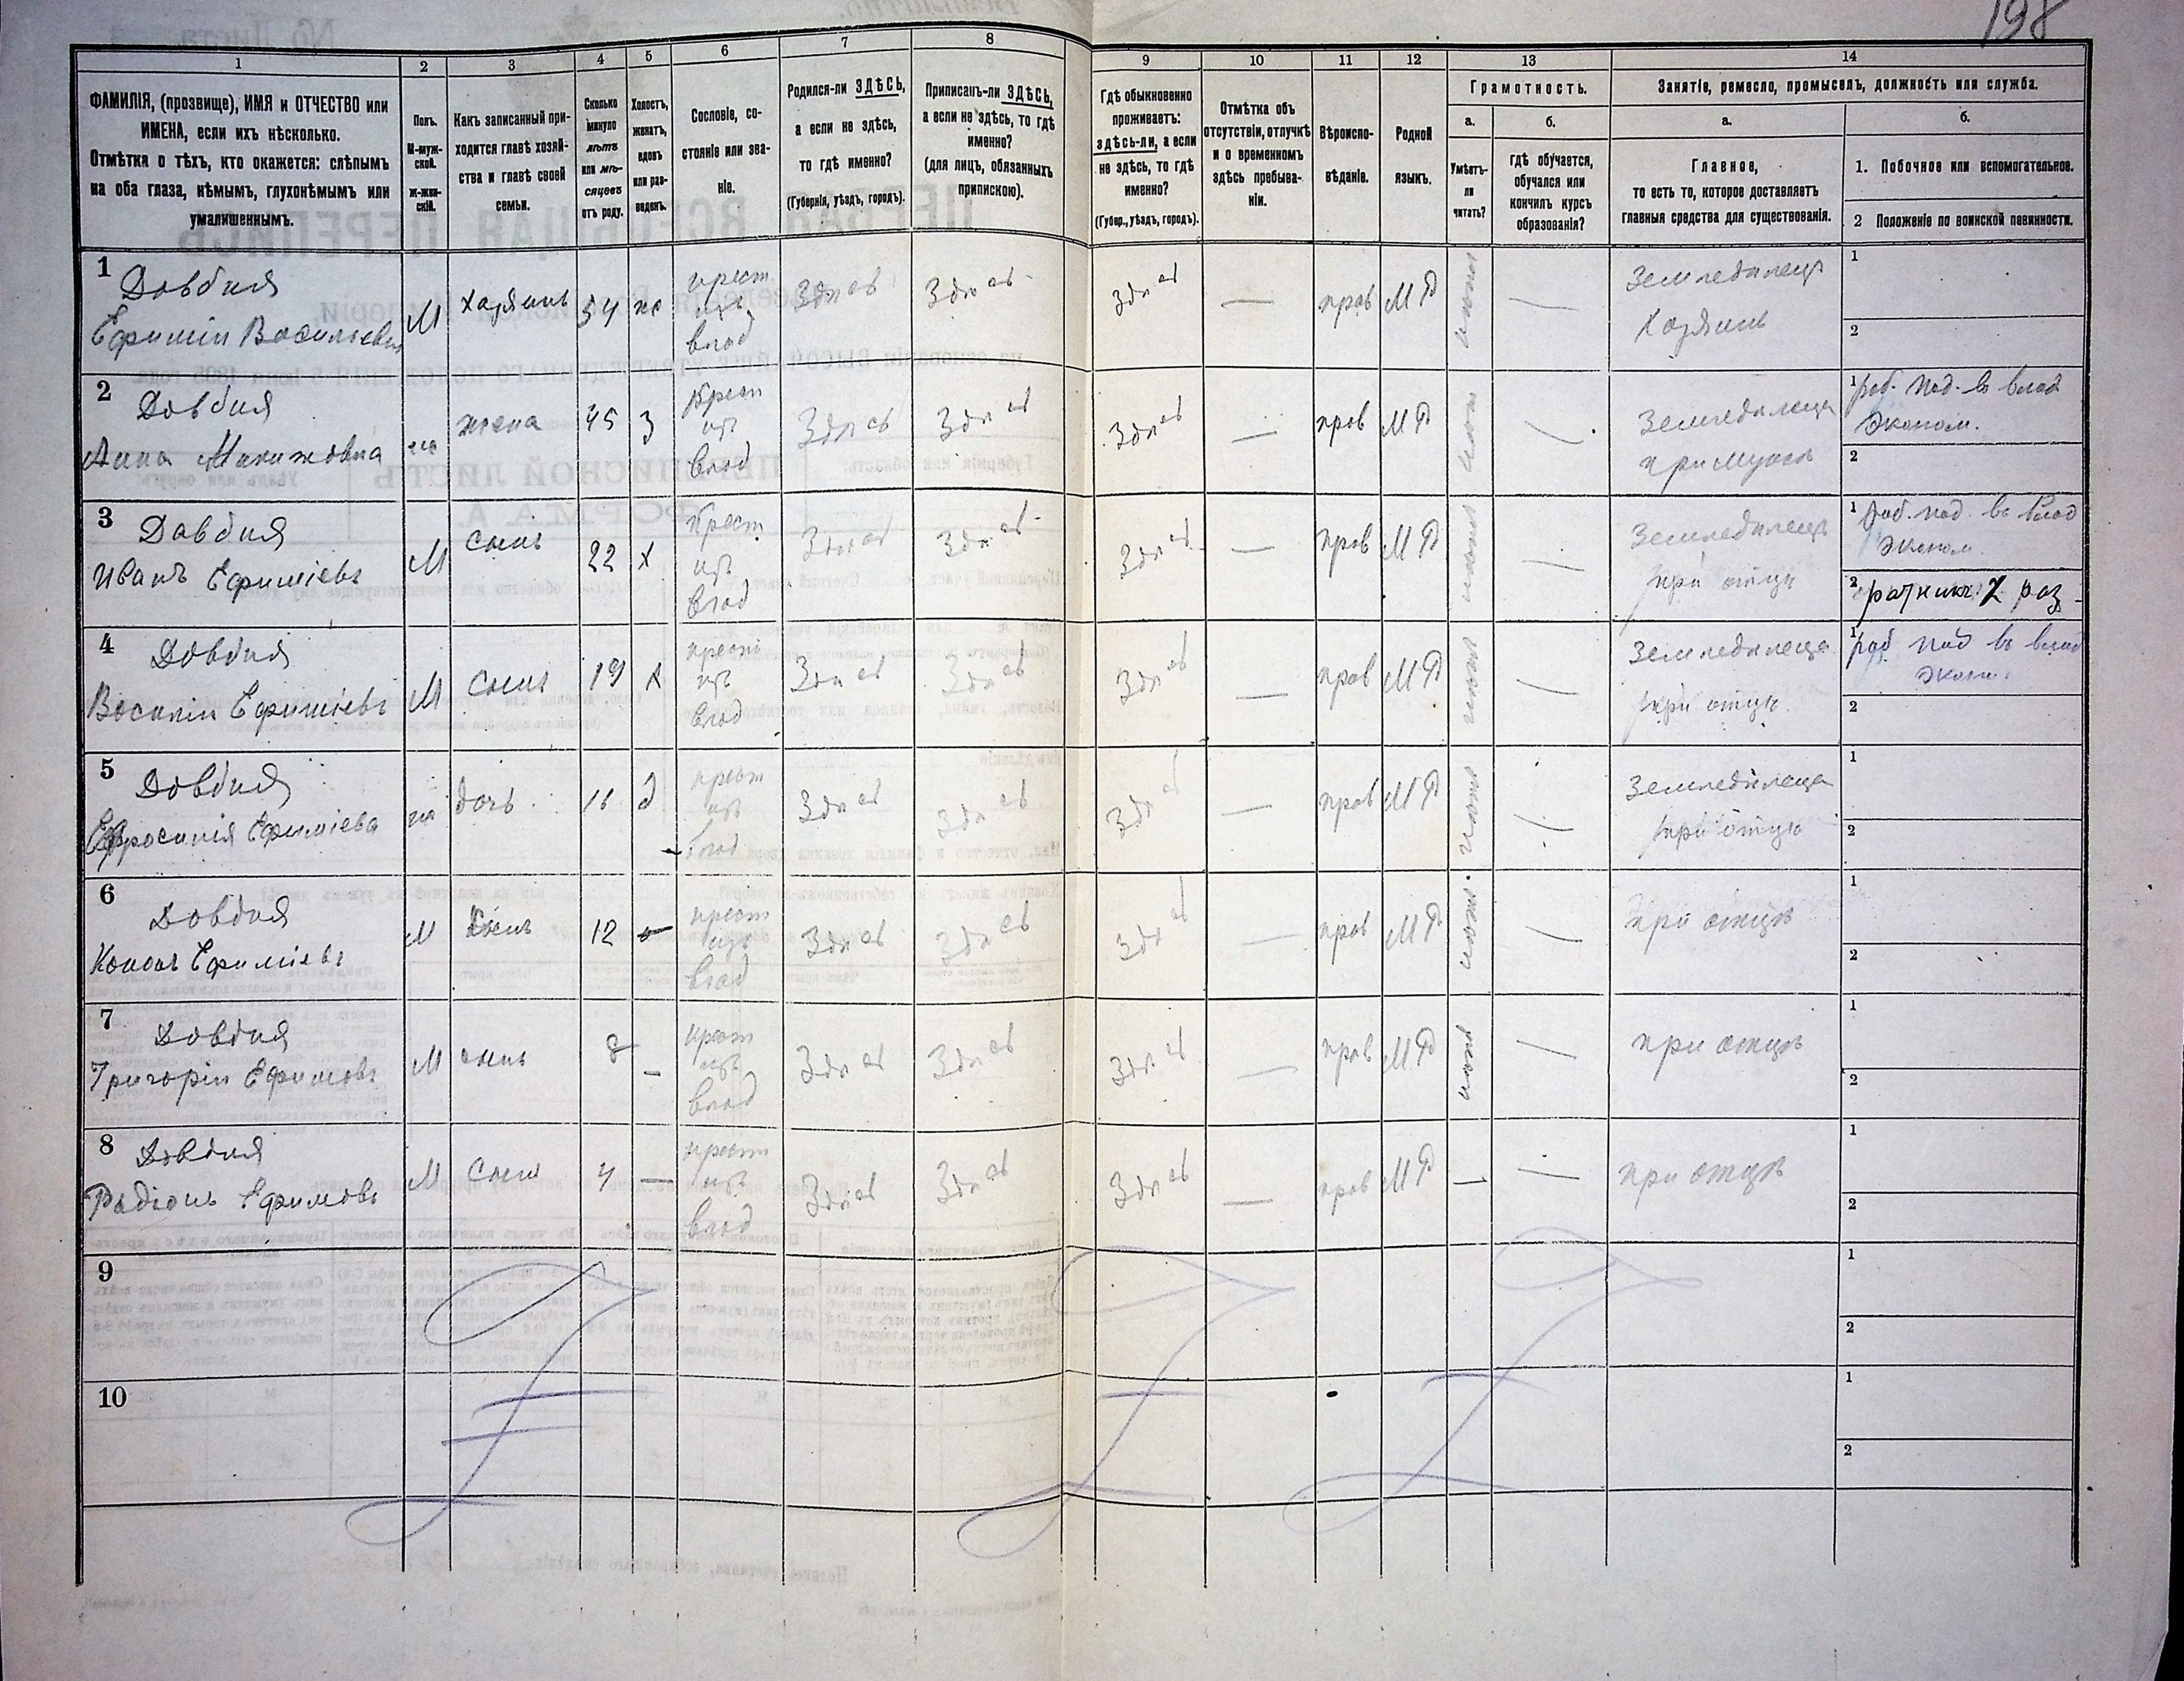 198
1
2
3
4
5
6
7
8
9
10
11
12
13
14
ФАМИЛІЯ, (прозвище), ИМЯ и ОТЧЕСТВО или
ИМЕНА, если ихъ нѣсколько.
Отмѣтка о тѣхъ, кто окажется: слѣпымъ
на оба глаза, нѣмымъ, глухонѣмымъ или
умалишеннымъ.
Полъ.
М-муж-
ской.
ж-жен-
скій.
Какъ записанный при-
ходится главѣ хозяй-
ства и главѣ своей
семьи.
Сколько
минуло
лѣтъ
или мѣ-
сяцевъ
отъ роду.
Холостъ,
женатъ,
вдовъ
или раз-
веденъ.
Сословіе, со-
стояніе или зва-
ніе.
Родился-ли ЗДѢСЬ,
а если не здѣсь,
то гдѣ именно?
(Губернія, уѣздъ, городъ).
Приписанъ-ли ЗДѢСЬ,
а если не здѣсь, то гдѣ
именно?
(для лицъ, обязанныхъ
припискою).
Гдѣ обыкновенно
проживаетъ:
здѣсь-ли, а если
не здѣсь, то гдѣ
именно?
(Губер., уѣздъ, городъ).
Отмѣтка объ
отсутствіи, отлучкѣ
и о временномъ
здѣсь пребыва-
ніи.
Вѣроиспо-
вѣданіе.
Родной
языкъ.
Грамотность.
а.
Умѣетъ-
ли
читать?
б.
гдѣ обучается,
обучался или
кончилъ курсъ
образованія?
Занятіе, ремесло, промыселъ, должность или служба.
а.
Главное,
то есть то, которое доставляетъ
главныя средства для существованія.
б.
1. Побочное или вспомогательное.
2 Положеніе по воинской повинности.
1
Довбня
Ефимій Васильевъ
М
Хозяинъ
54
ж
крест
изъ
влад
Здѣсь
Здѣсь
Здѣсь
—
прав
МР
Земледѣлецъ
Хозяинъ
1
2
2
Довбня
Анна
жена
45
З
Крест
изъ
влад
Здѣсь
Здѣсь
Здѣсь
—
прав
МР
Земледѣлеца
при мужѣ
1 раб. под. въ влад
Эконом.
2
3
Довбня
Иванъ Ефиміевъ
М
Сынъ
22
Х
Крест
изъ
влад
Здѣсь
Здѣсь
Здѣсь
—
прав
МР
Земледѣлецъ
при отцѣ
1 раб. под. въ влад
Эконом
2 ратникъ 2 раз
4
Довбня
Василій Ефиміевъ
М
Сынъ
19
Х
крест
изъ
влад
Здѣсь
Здѣсь
Здѣсь
—
прав
МР
Земледѣлеца
при отцѣ
1 раб под въ влад
Эконом.
2
5
Довбня
Ефросинія Ефиміева
ж
дочь
16
д
крест
изъ
влад
Здѣсь
Здѣсь
Здѣсь
—
прав
МР
Земледѣлеца
при отцѣ
1
2
6
Довбня
Кононъ Ефиміевъ
М
Сынъ
12
крест
изъ
влад
Здѣсь
Здѣсь
Здѣсь
—
прав
МР
при отцѣ
1
2
7
Довбня
Григорій Ефимовъ
М
сынъ
8
—
крест
изъ
влад
Здѣсь
Здѣсь
Здѣсь
—
прав
МР
при отцѣ
1
2
8
Довбня
Радіонъ Ефимовъ
М
Сынъ
4
—
крест
изъ
влад
Здѣсь
Здѣсь
Здѣсь
—
прав
МР
при отцѣ
1
2
9
1
2
10
1
2